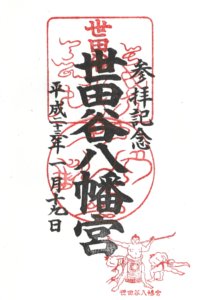 参拝記念
世田谷八幡宮
平成二十三年一月十九日
世田谷八幡宮